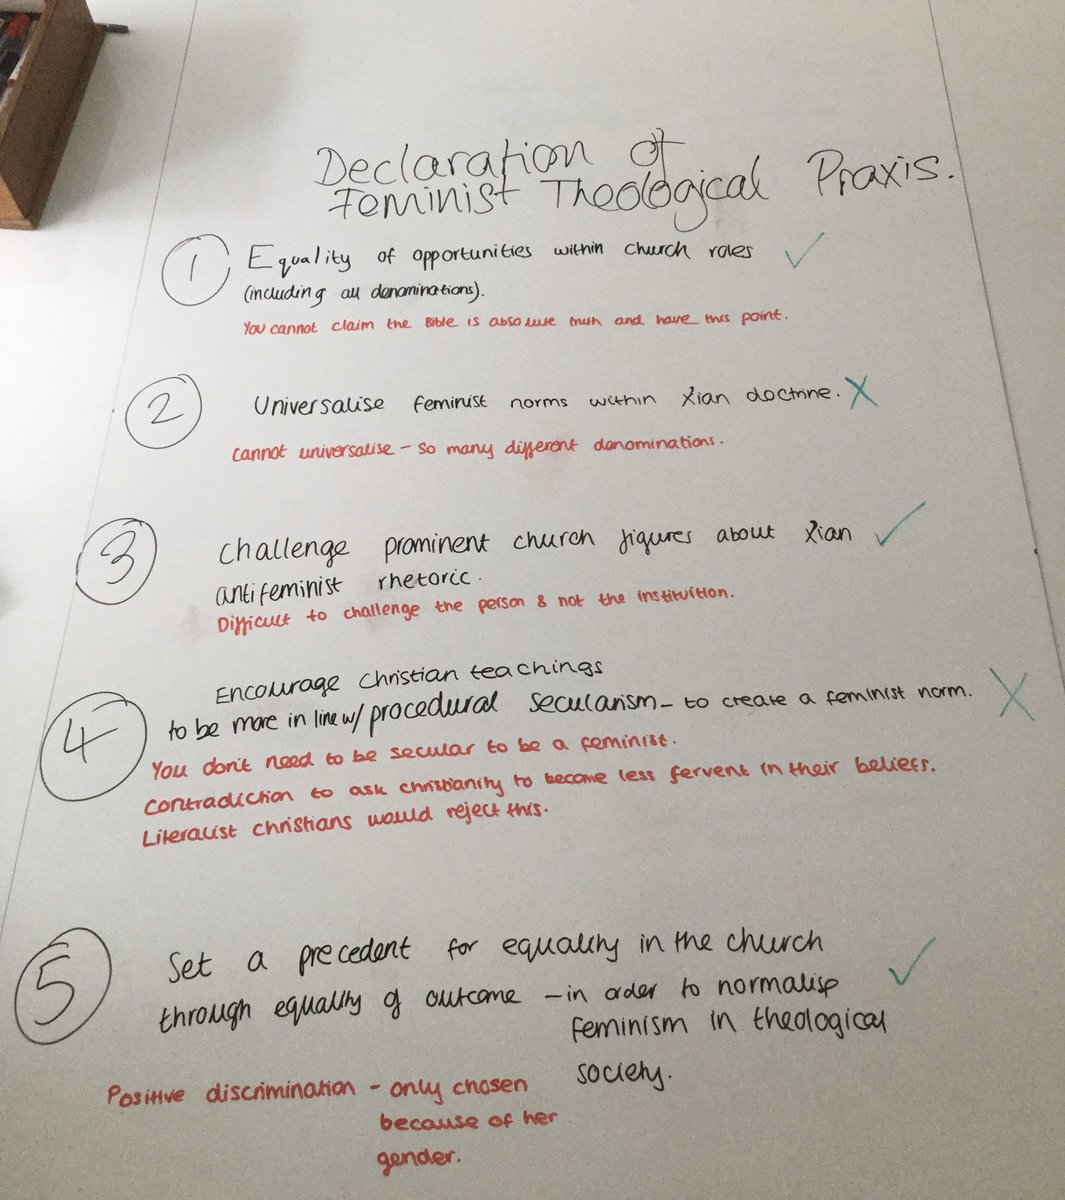 Declaration of
Feminist Theological Praxis.
1 Equality of opportunities within church roles ✓
(including all denominations).
You cannot claim the Bible is absolute truth and have this point.
2 Universalise feminist norms within Xian doctrine. X
Cannot universalise - so many different denominations.
3 Challenge prominent church figures about Xian ✓
antifeminist rhetoric.
Difficult to challenge the person & not the instituition.
Encourage Christian teachings
4 to be more in line w/ procedural secularism - to create a feminist norm. X
You don't need to be secular to be a feminist.
Contradiction to ask christianity to become less fervent in their beliefs.
Literalist christians would reject this.
5 Set a precedent for equality in the church ✓
through equality of outcome - in order to normalise
feminism in theological
society.
Positive discrimination - only chosen
because of her
gender.